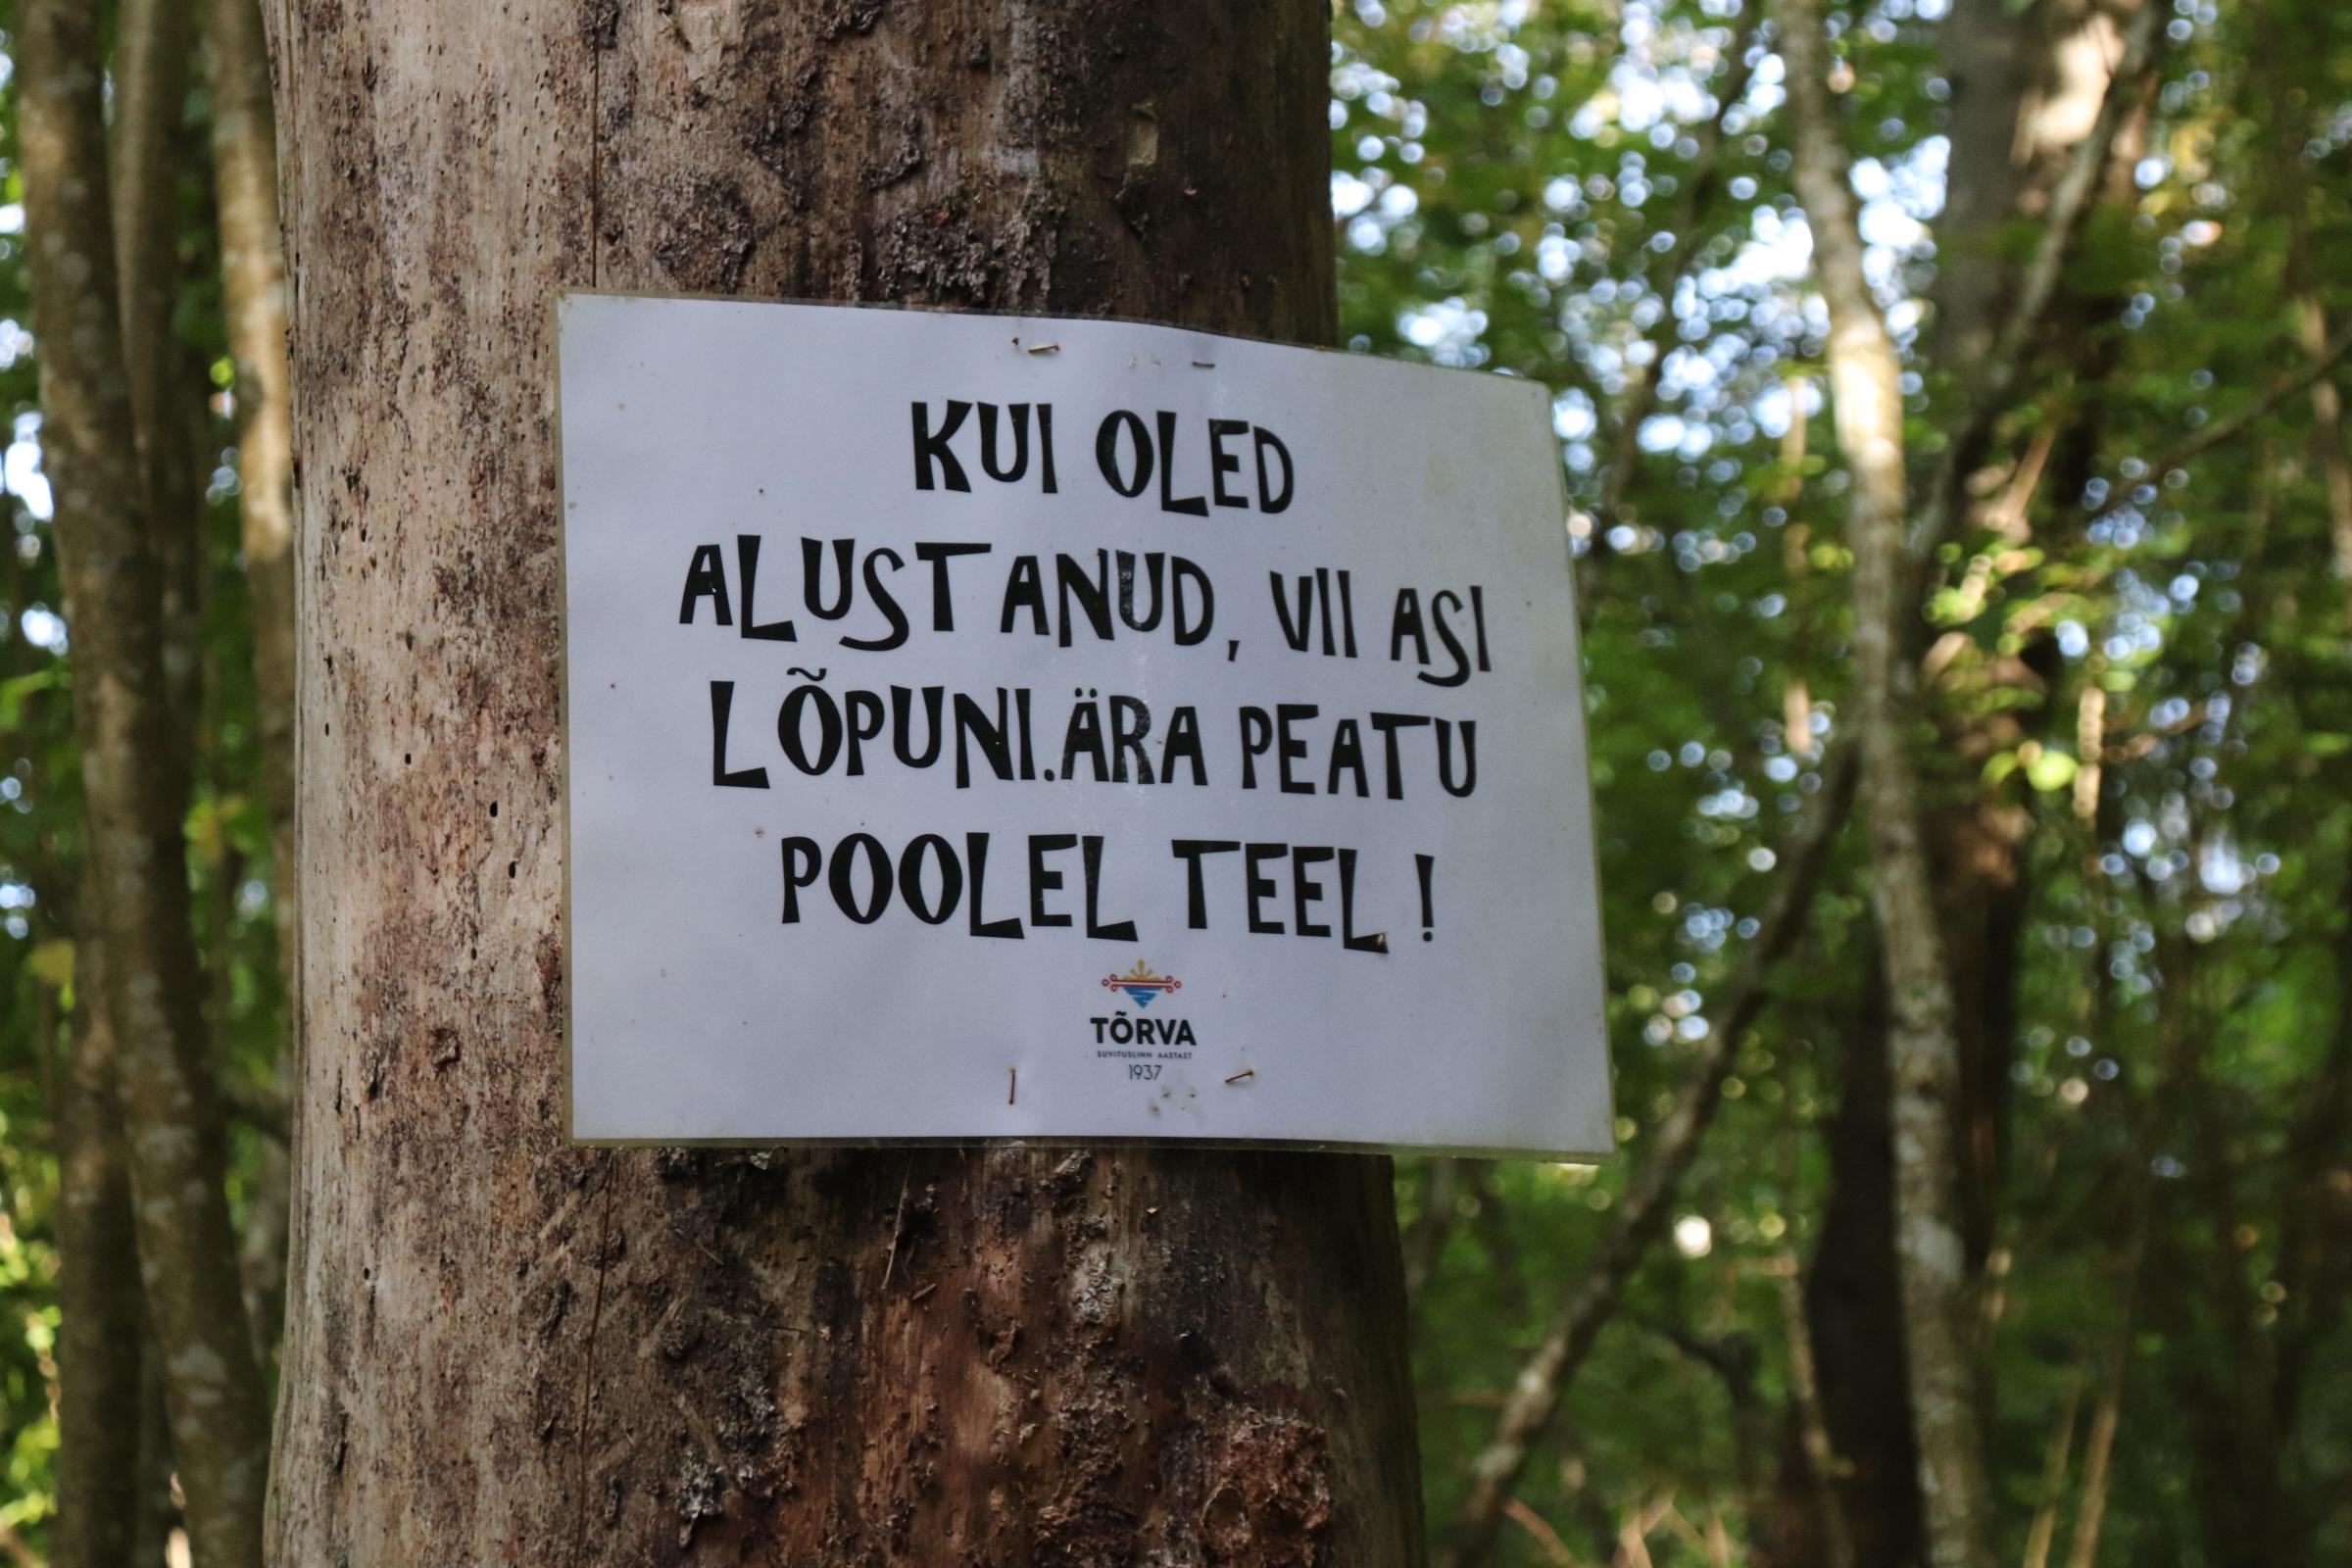 KUI OLED
ALUSTANUD, VII ASI
LÕPUNI.ÄRA PEATU
POOLEL TEEL!
TÕRVA
SUVITUSLINN AASTAST
1937